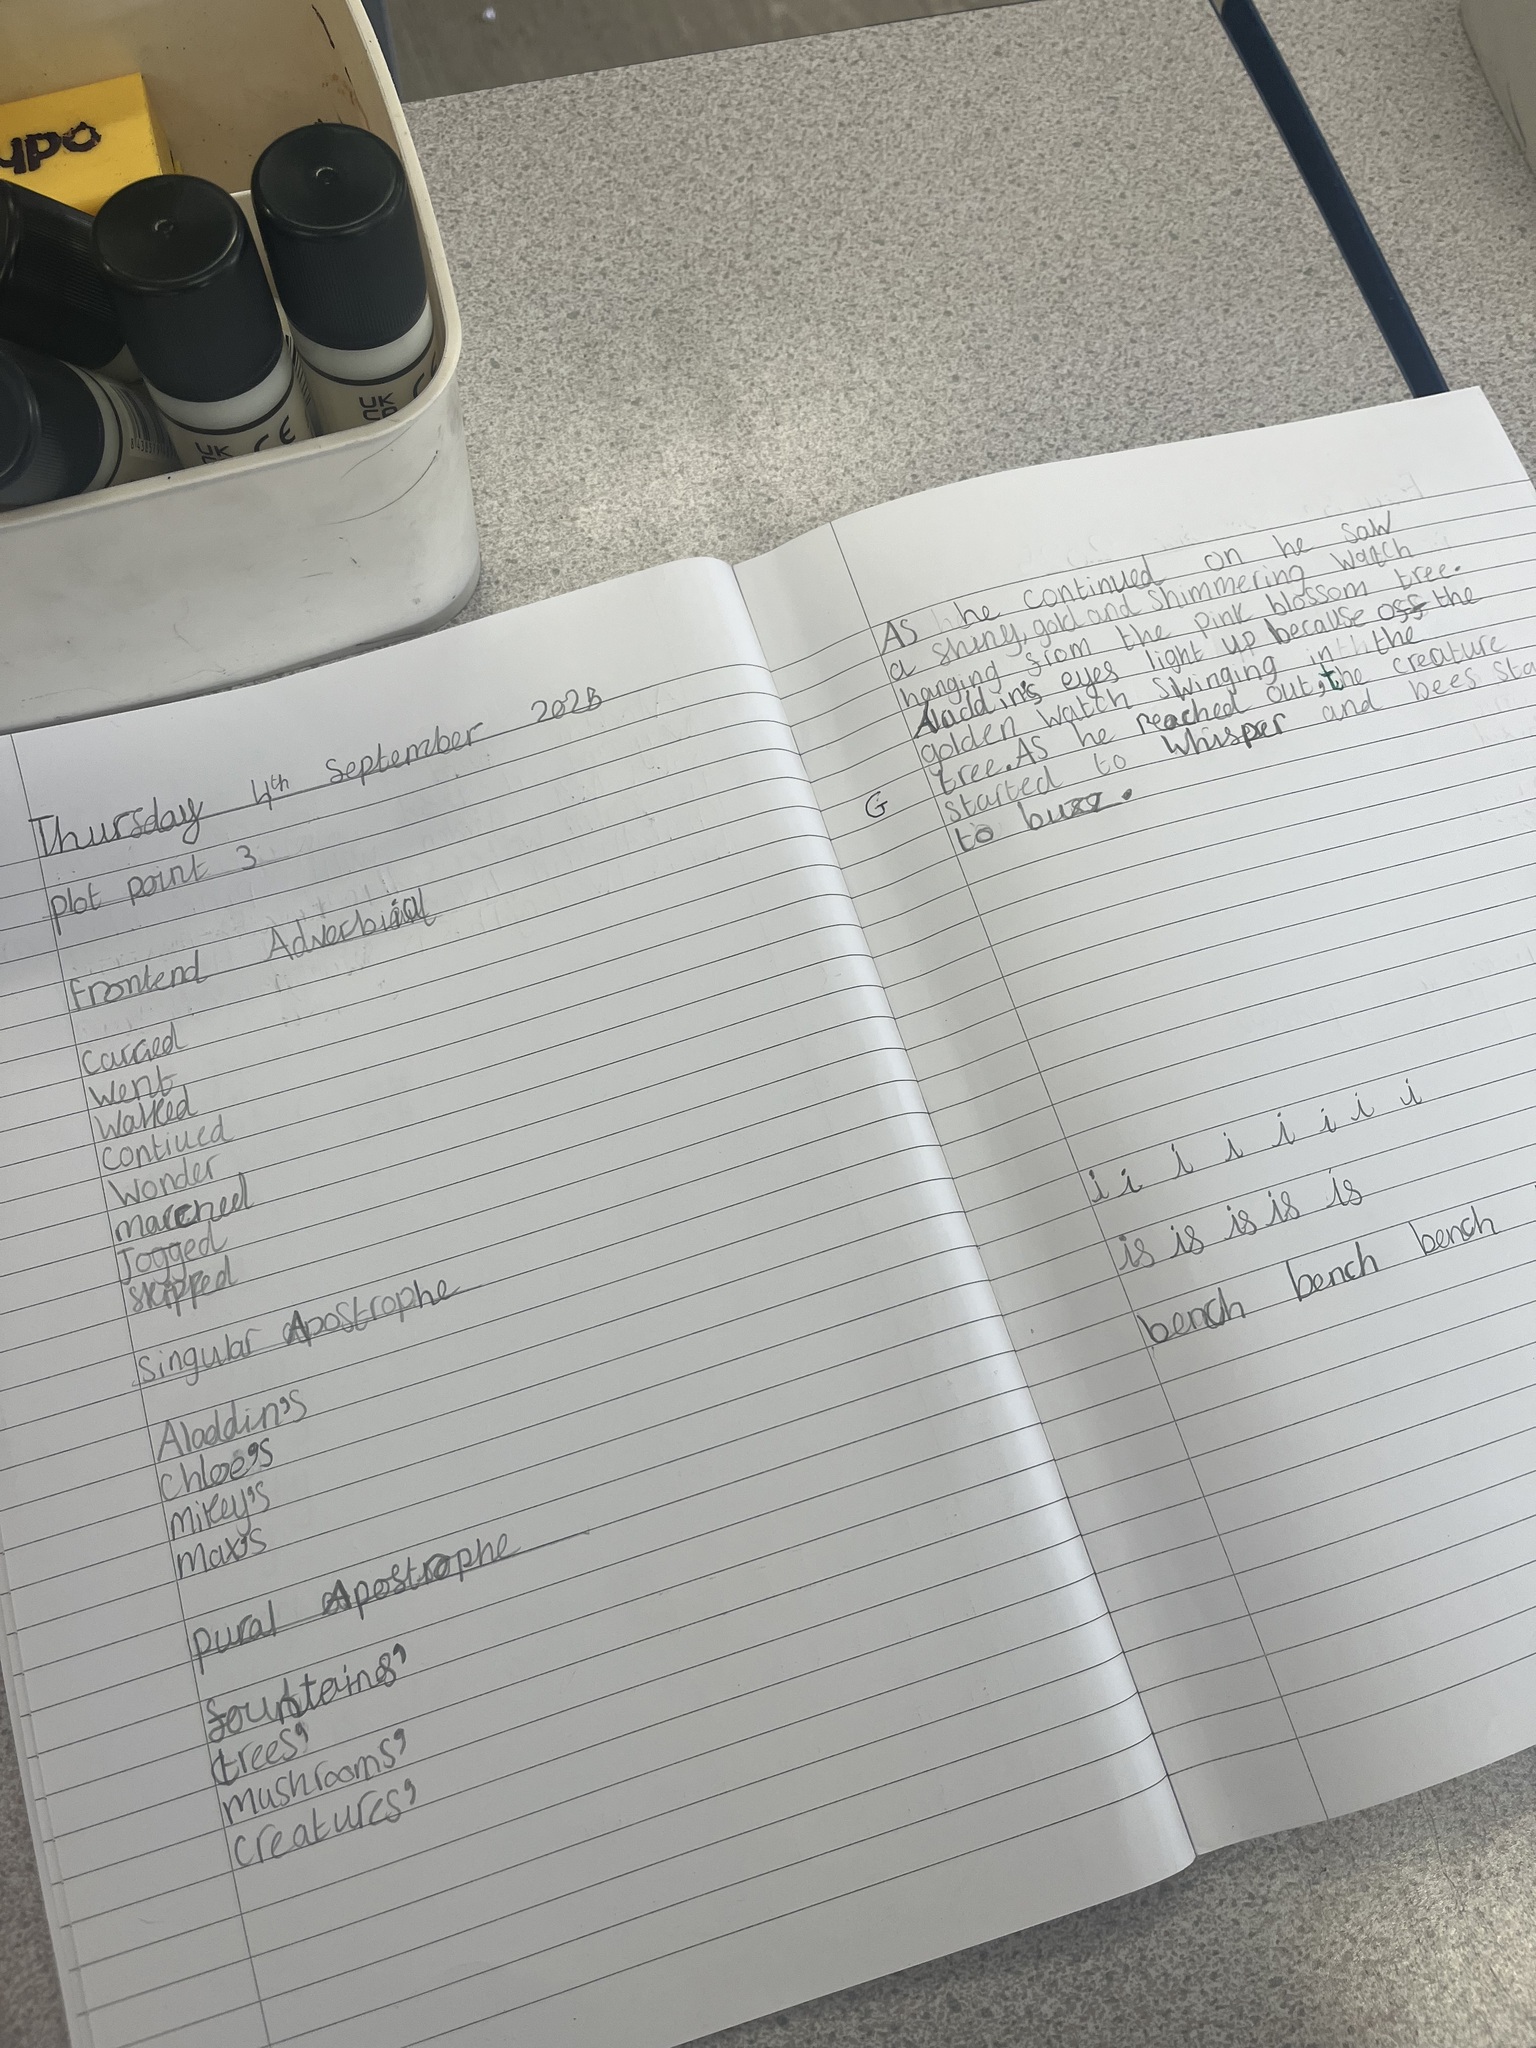 UK
CA
CE
UK
CE
Thursday 4th September 2025
plot point 3
Frontend Adverbial
Carried
Went
Walked
Contiued
Wonder
marched
Jogged
skipped
Singular Apostrophe
Aladdin's
Chloe's
Mikey's
Max's
pural Apostrophe
fountains'
trees'
mushrooms'
creatures'
As he continued on he saw
a shiny, gold and shimmering watch
hanging from the pink blossom tree.
Aladdin's eyes light up because off the
golden watch swinging in the
tree. As he reached out, the creature
G started to whisper and bees sta
to buzz.
i i i i i i i i
is is is is is
bench bench bench